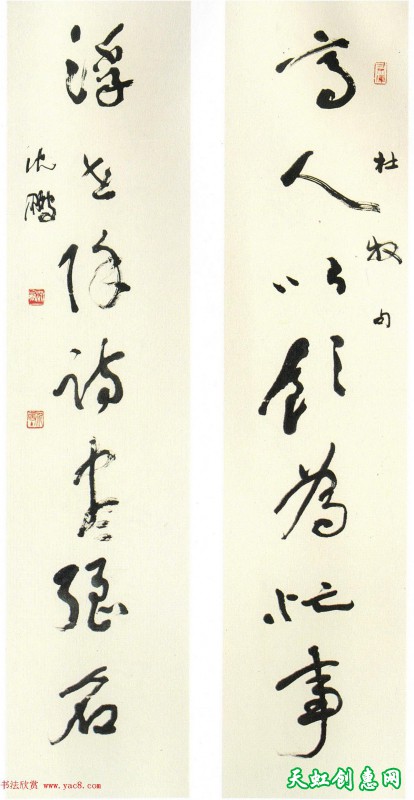 高人以飲為忙事
杜牧句
浮世除詩盡強名
沈鵬
书法欣赏 www.yac8.com
天虹创惠网